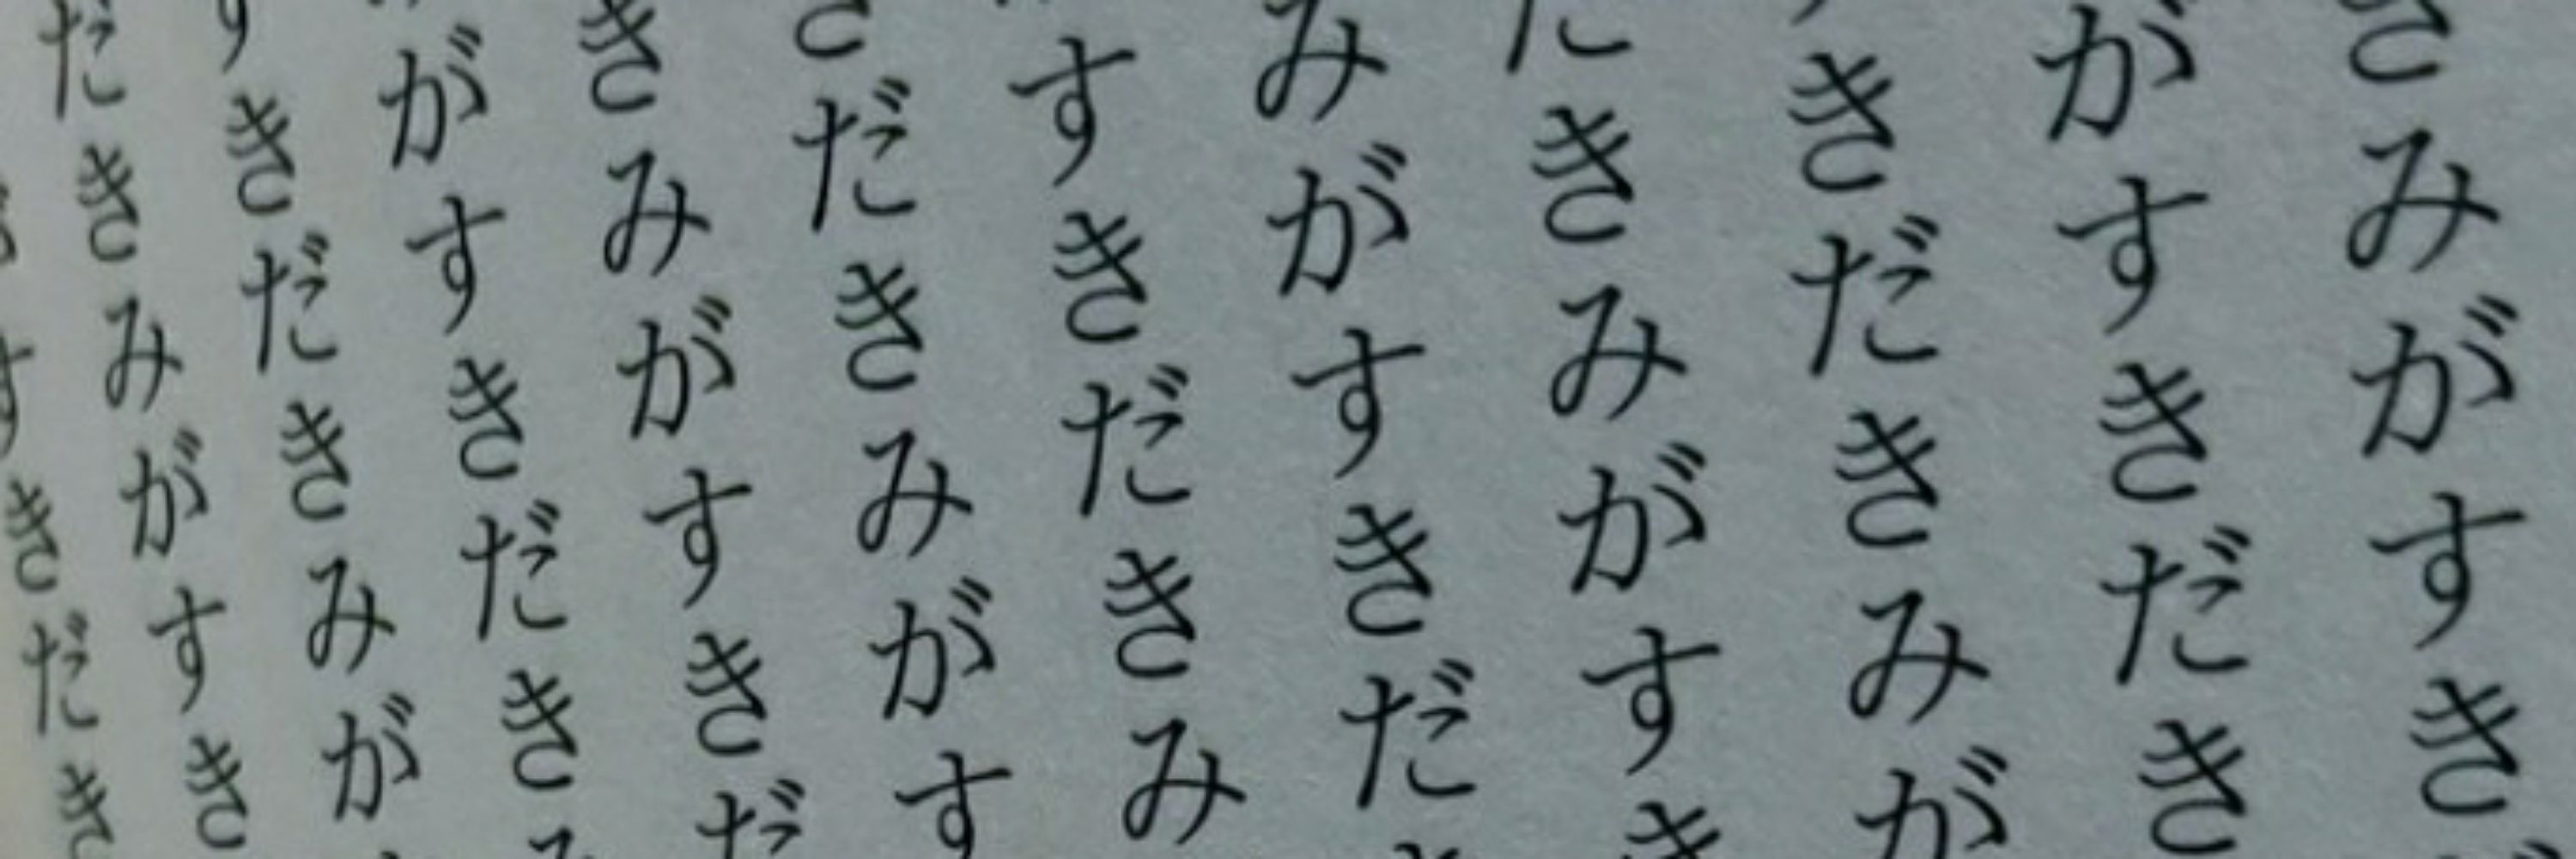 きみがすき
がすきだき
きだきみが
きみがすき
みがすきだ
すきだきみ
だきみがす
きみがすきだ
がすきだき
すきだきみが
だきみがすき
すきだき